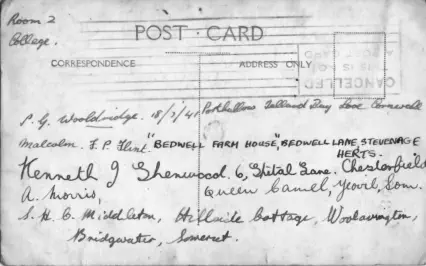 Room 2
College.
POST CARD
CORRESPONDENCE
ADDRESS ONLY
CANCELLED
P. G. Wooldridge. 18/7/41 Porthallow Talland Bay Looe Cornwall
Malcolm. F. P. Flint. "BEDWELL FARM HOUSE," BEDWELL LANE, STEVENAGE
HERTS.
Kenneth J Sherwood. 6, Spital Lane. Chesterfield
A. Morris, Queen Camel, Yeovil, Som.
S. H. C. Middleton, Hillside Cottage, Woolavington,
Bridgwater, Somerset.